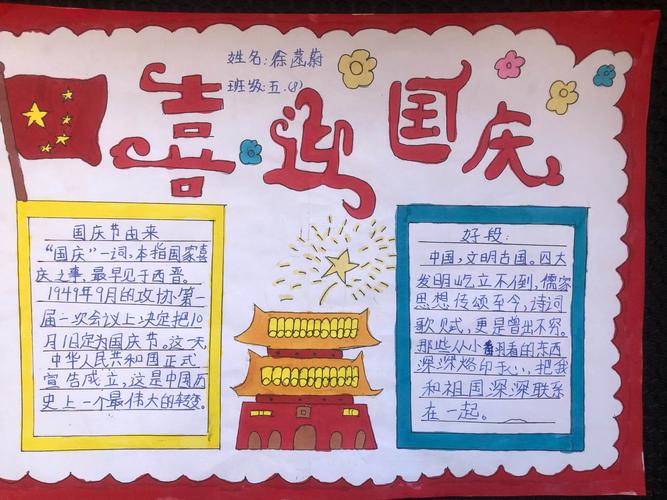 姓名:徐菡蔚
班级:五.(8)
喜迎国庆
国庆节由来
“国庆”一词,本指国家喜
庆之事,最早见于西晋。
1949年9月的政协第一
届一次会议上决定把10
月1日定为国庆节。这一天
中华人民共和国正式
宣告成立,这是中国历
史上一个最伟大的转变。
好段:
中国,文明古国。四大
发明屹立不倒,儒家
思想传颂至今,诗词
歌赋,更是曾出不穷。
那些从小看的东西
深深烙的于心,把我
和祖国深深联系
在一起。